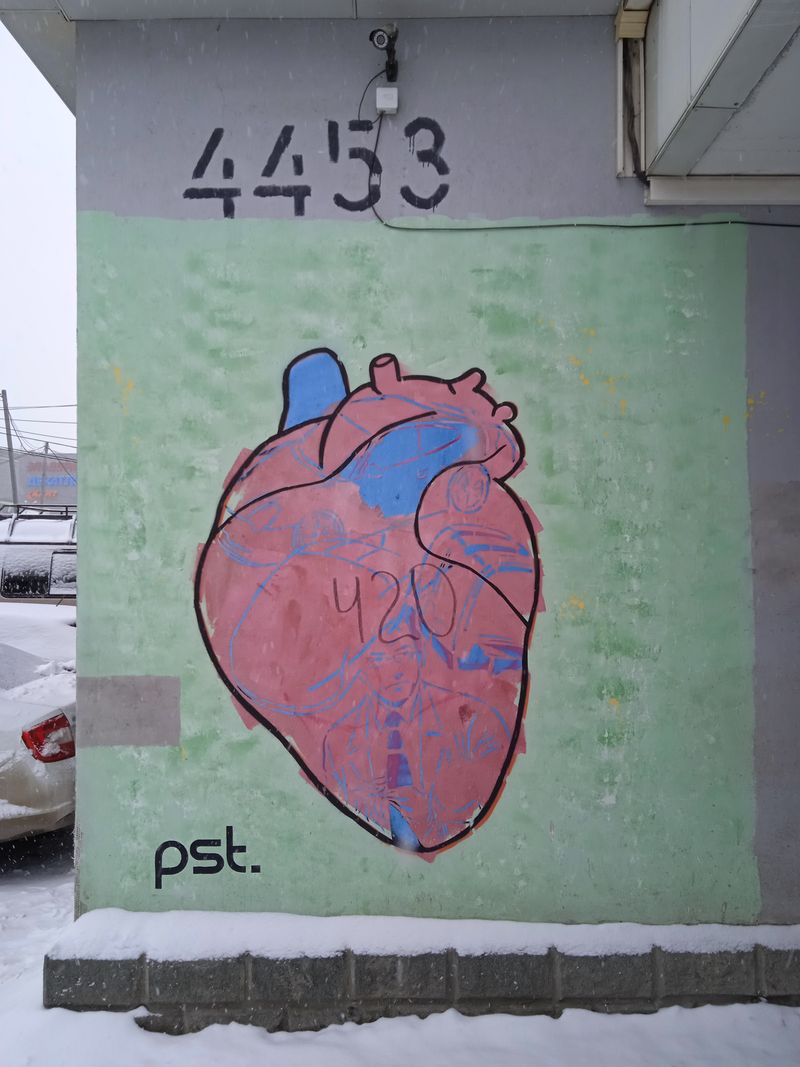 4453
420
pst.